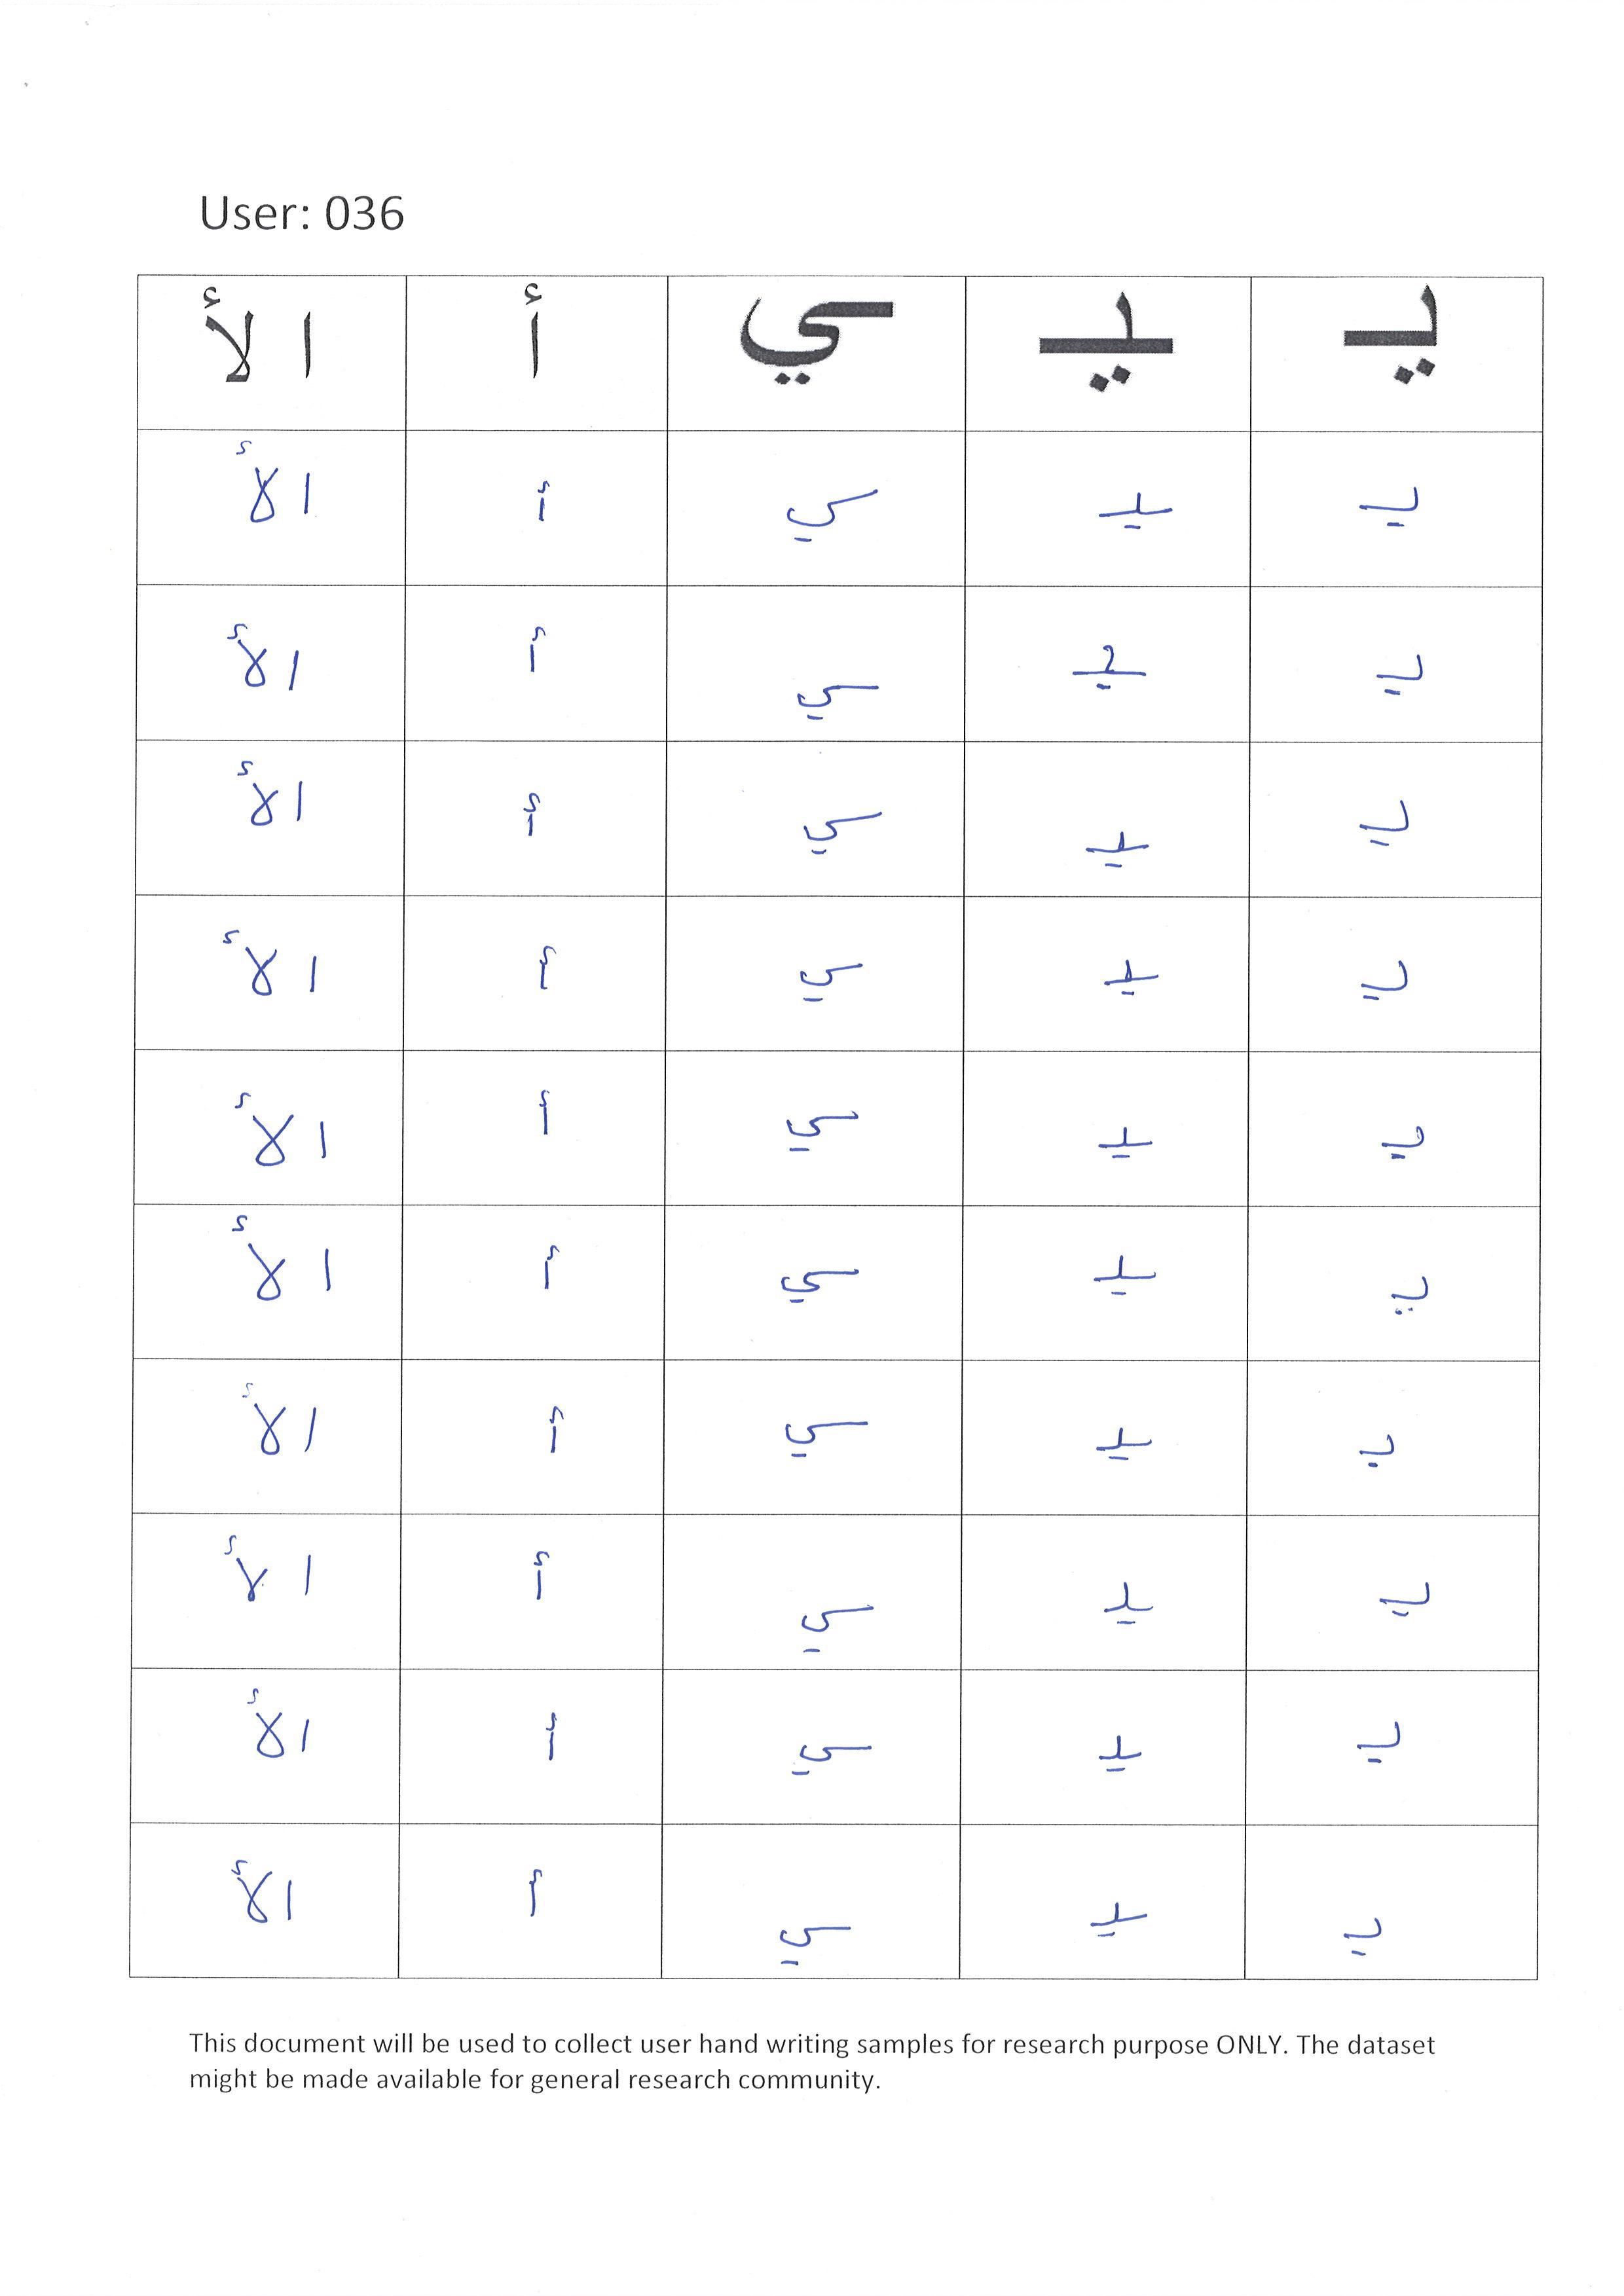 User: 036
يـ ـيـ ـي أ ا لأ
يـ ـيـ ـي أ ا لأ
يـ ـيـ ـي أ ا لأ
يـ ـيـ ـي أ ا لأ
يـ ـيـ ـي أ ا لأ
يـ ـيـ ـي أ ا لأ
يـ ـيـ ـي أ ا لأ
يـ ـيـ ـي أ ا لأ
يـ ـيـ ـي أ ا لأ
يـ ـيـ ـي أ ا لأ
يـ ـيـ ـي أ ا لأ
This document will be used to collect user hand writing samples for research purpose ONLY. The dataset
might be made available for general research community.